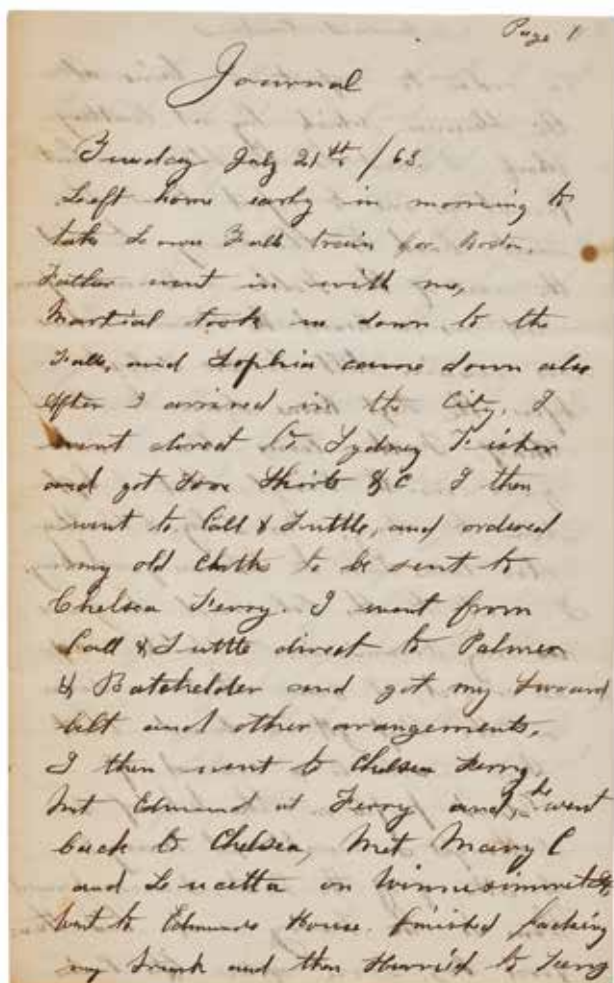 Page 1
Journal
Tuesday July 21st /63.
Left home early in morning to
take Lower Falls train for Boston.
Father went in with me,
Martial took us down, to the
Falls, and Sophia came down also
After I arrived in the City. I
went direct to Sydney Fisher
and got some Shirts &C I then
went to Call & Tuttle, and ordered
my old Cloth to be sent to
Chelsea Ferry. I went from
Call & Tuttle direct to Palmer
& Batchelder and got my Sword
belt and other arangements.
I then went to Chelsea Ferry,
Met Edmund at Ferry and, went
back to Chelsea, Met Mary C
and Lucetta on Winnisimmet St
Went to Edmunds House. finished packing
my trunk and then Hurried to Ferry